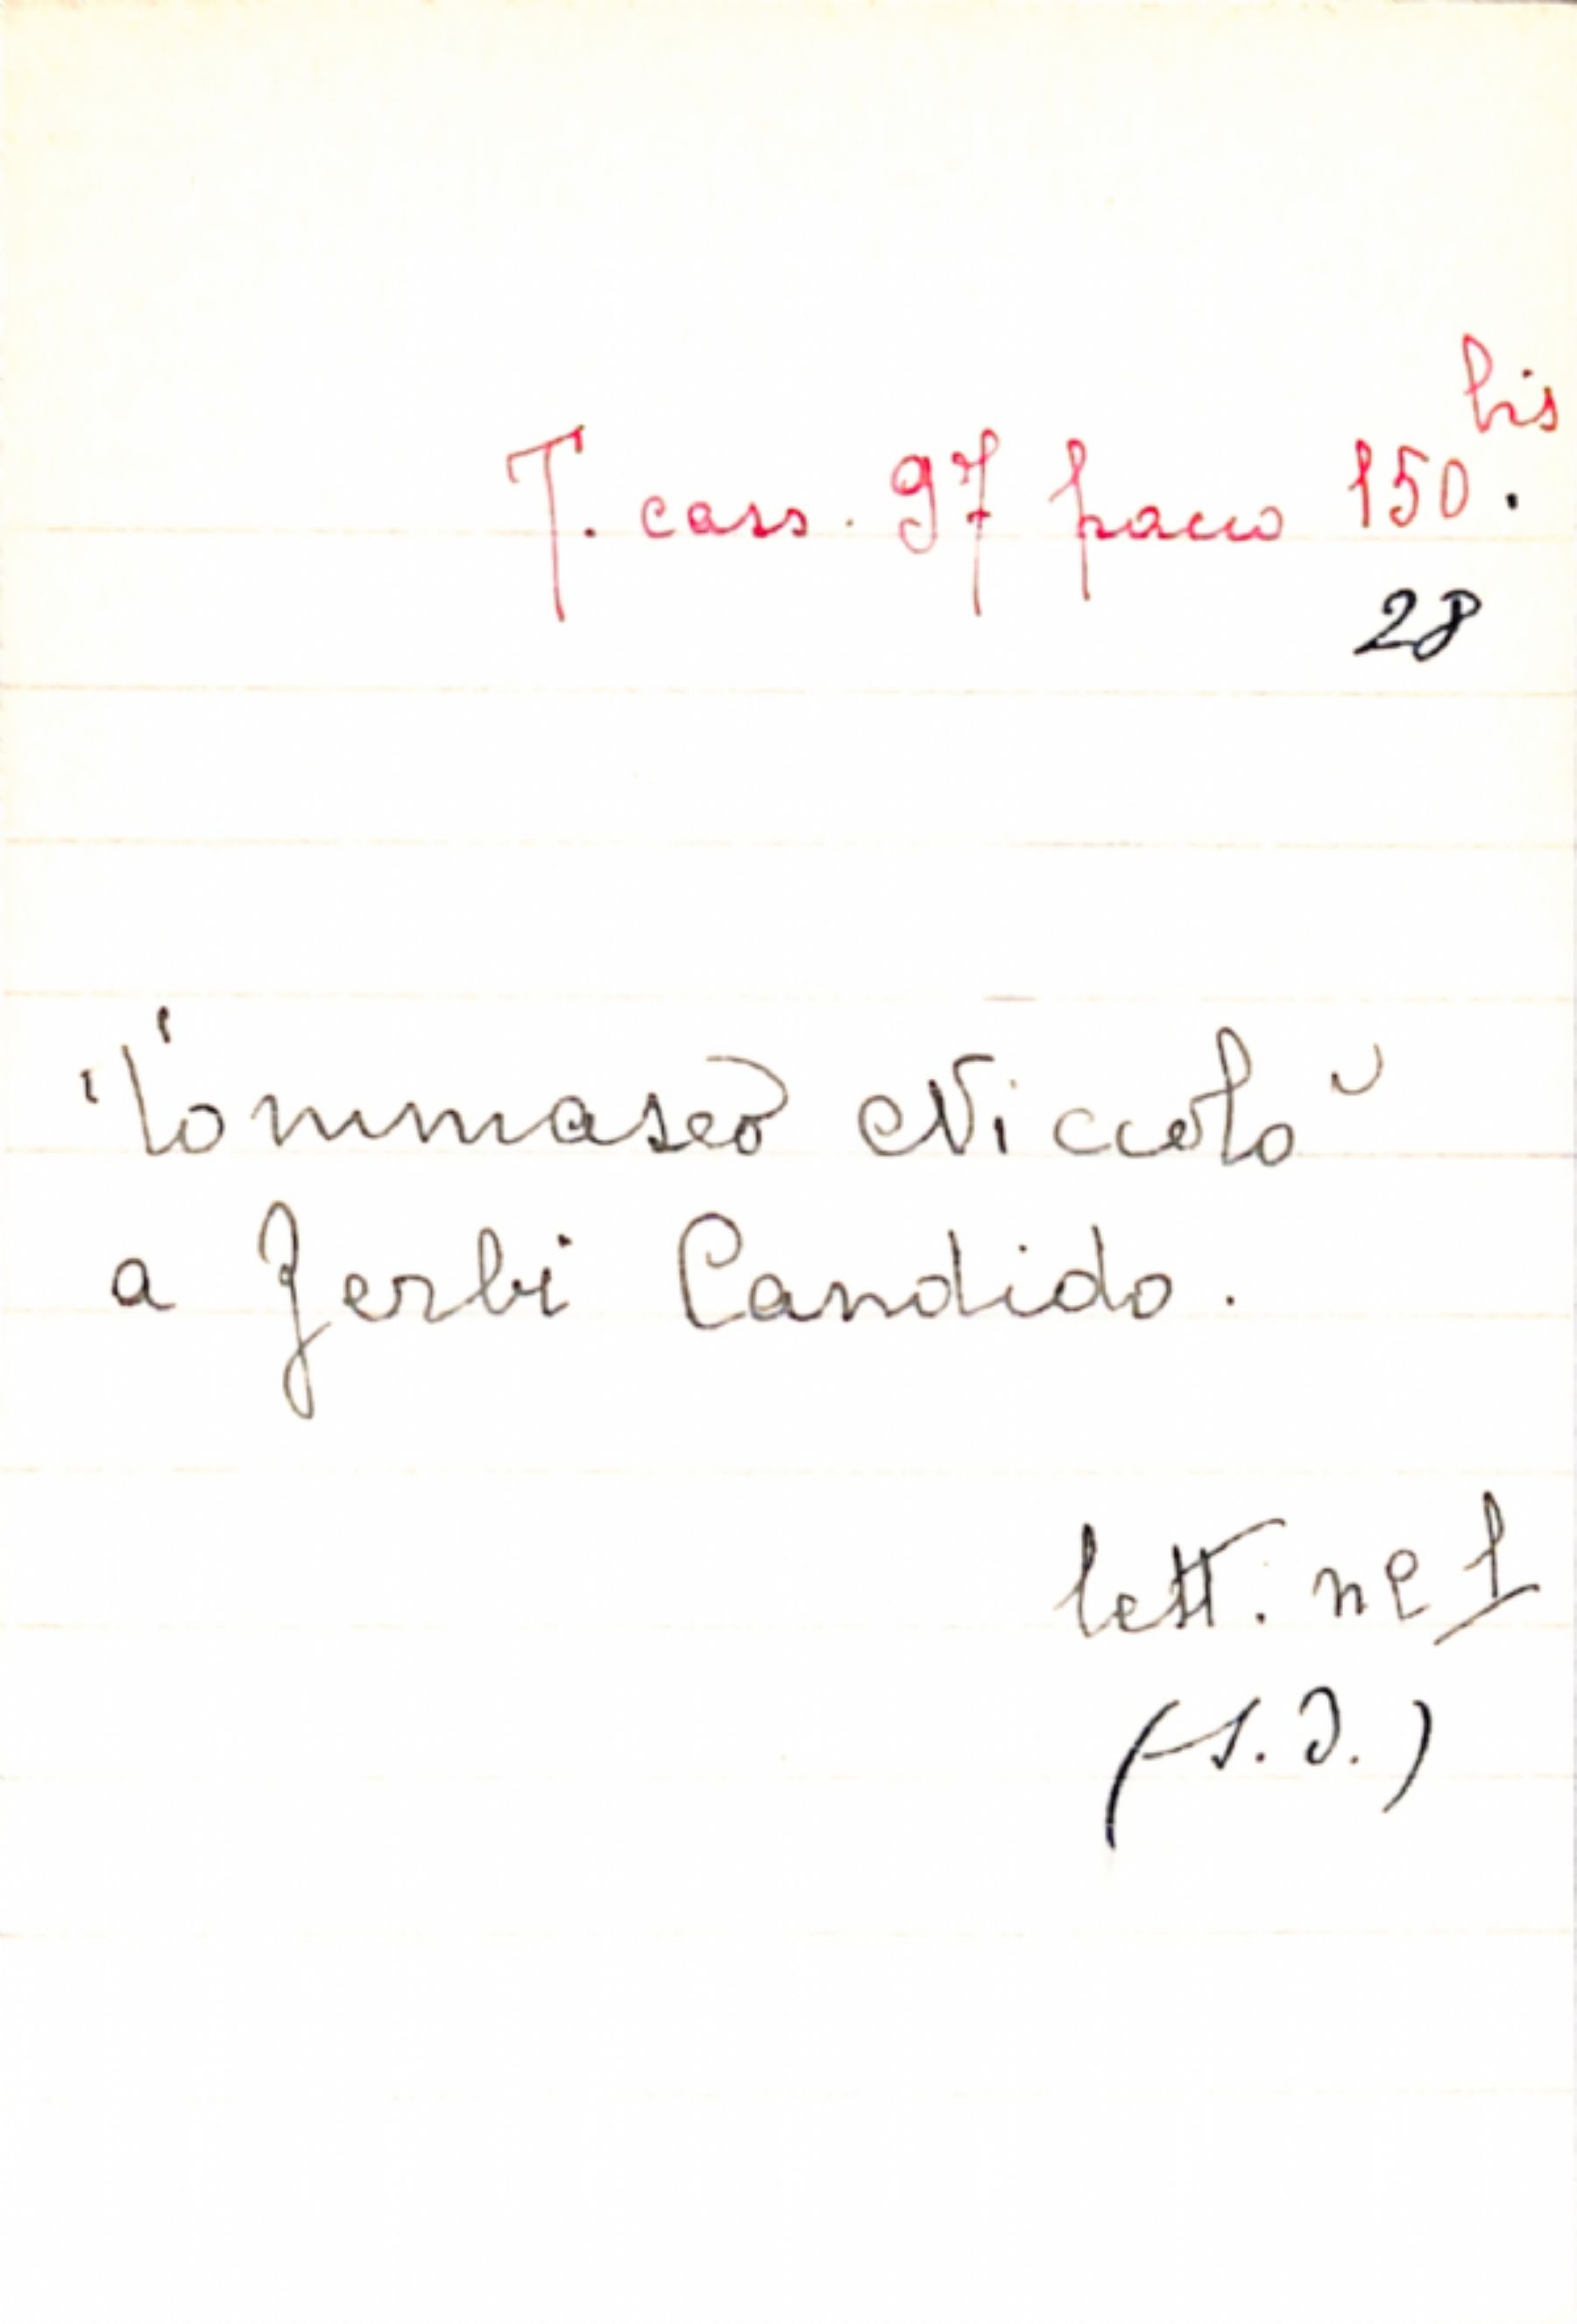 T. cass. 97 pacco 150 bis.
28
Tommaseo Niccolò
a Zerbi Candido.
lett. nº 1
(s.d.)